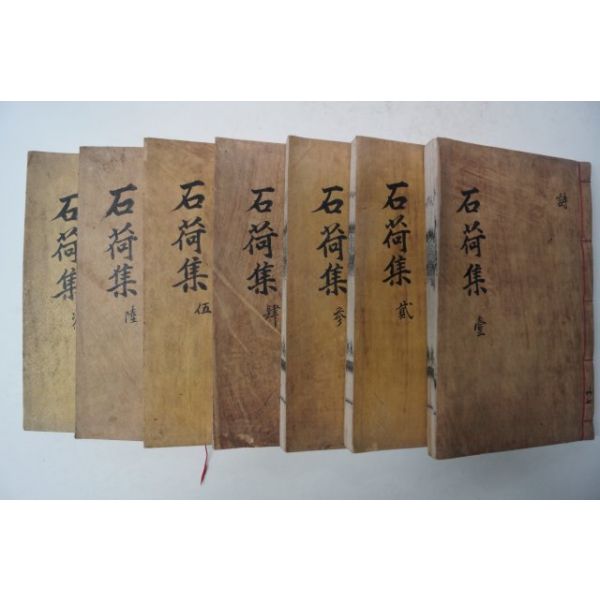 詩
石荷集 壹
石荷集 貳
石荷集 參
石荷集 肆
石荷集 伍
石荷集 陸
石荷集